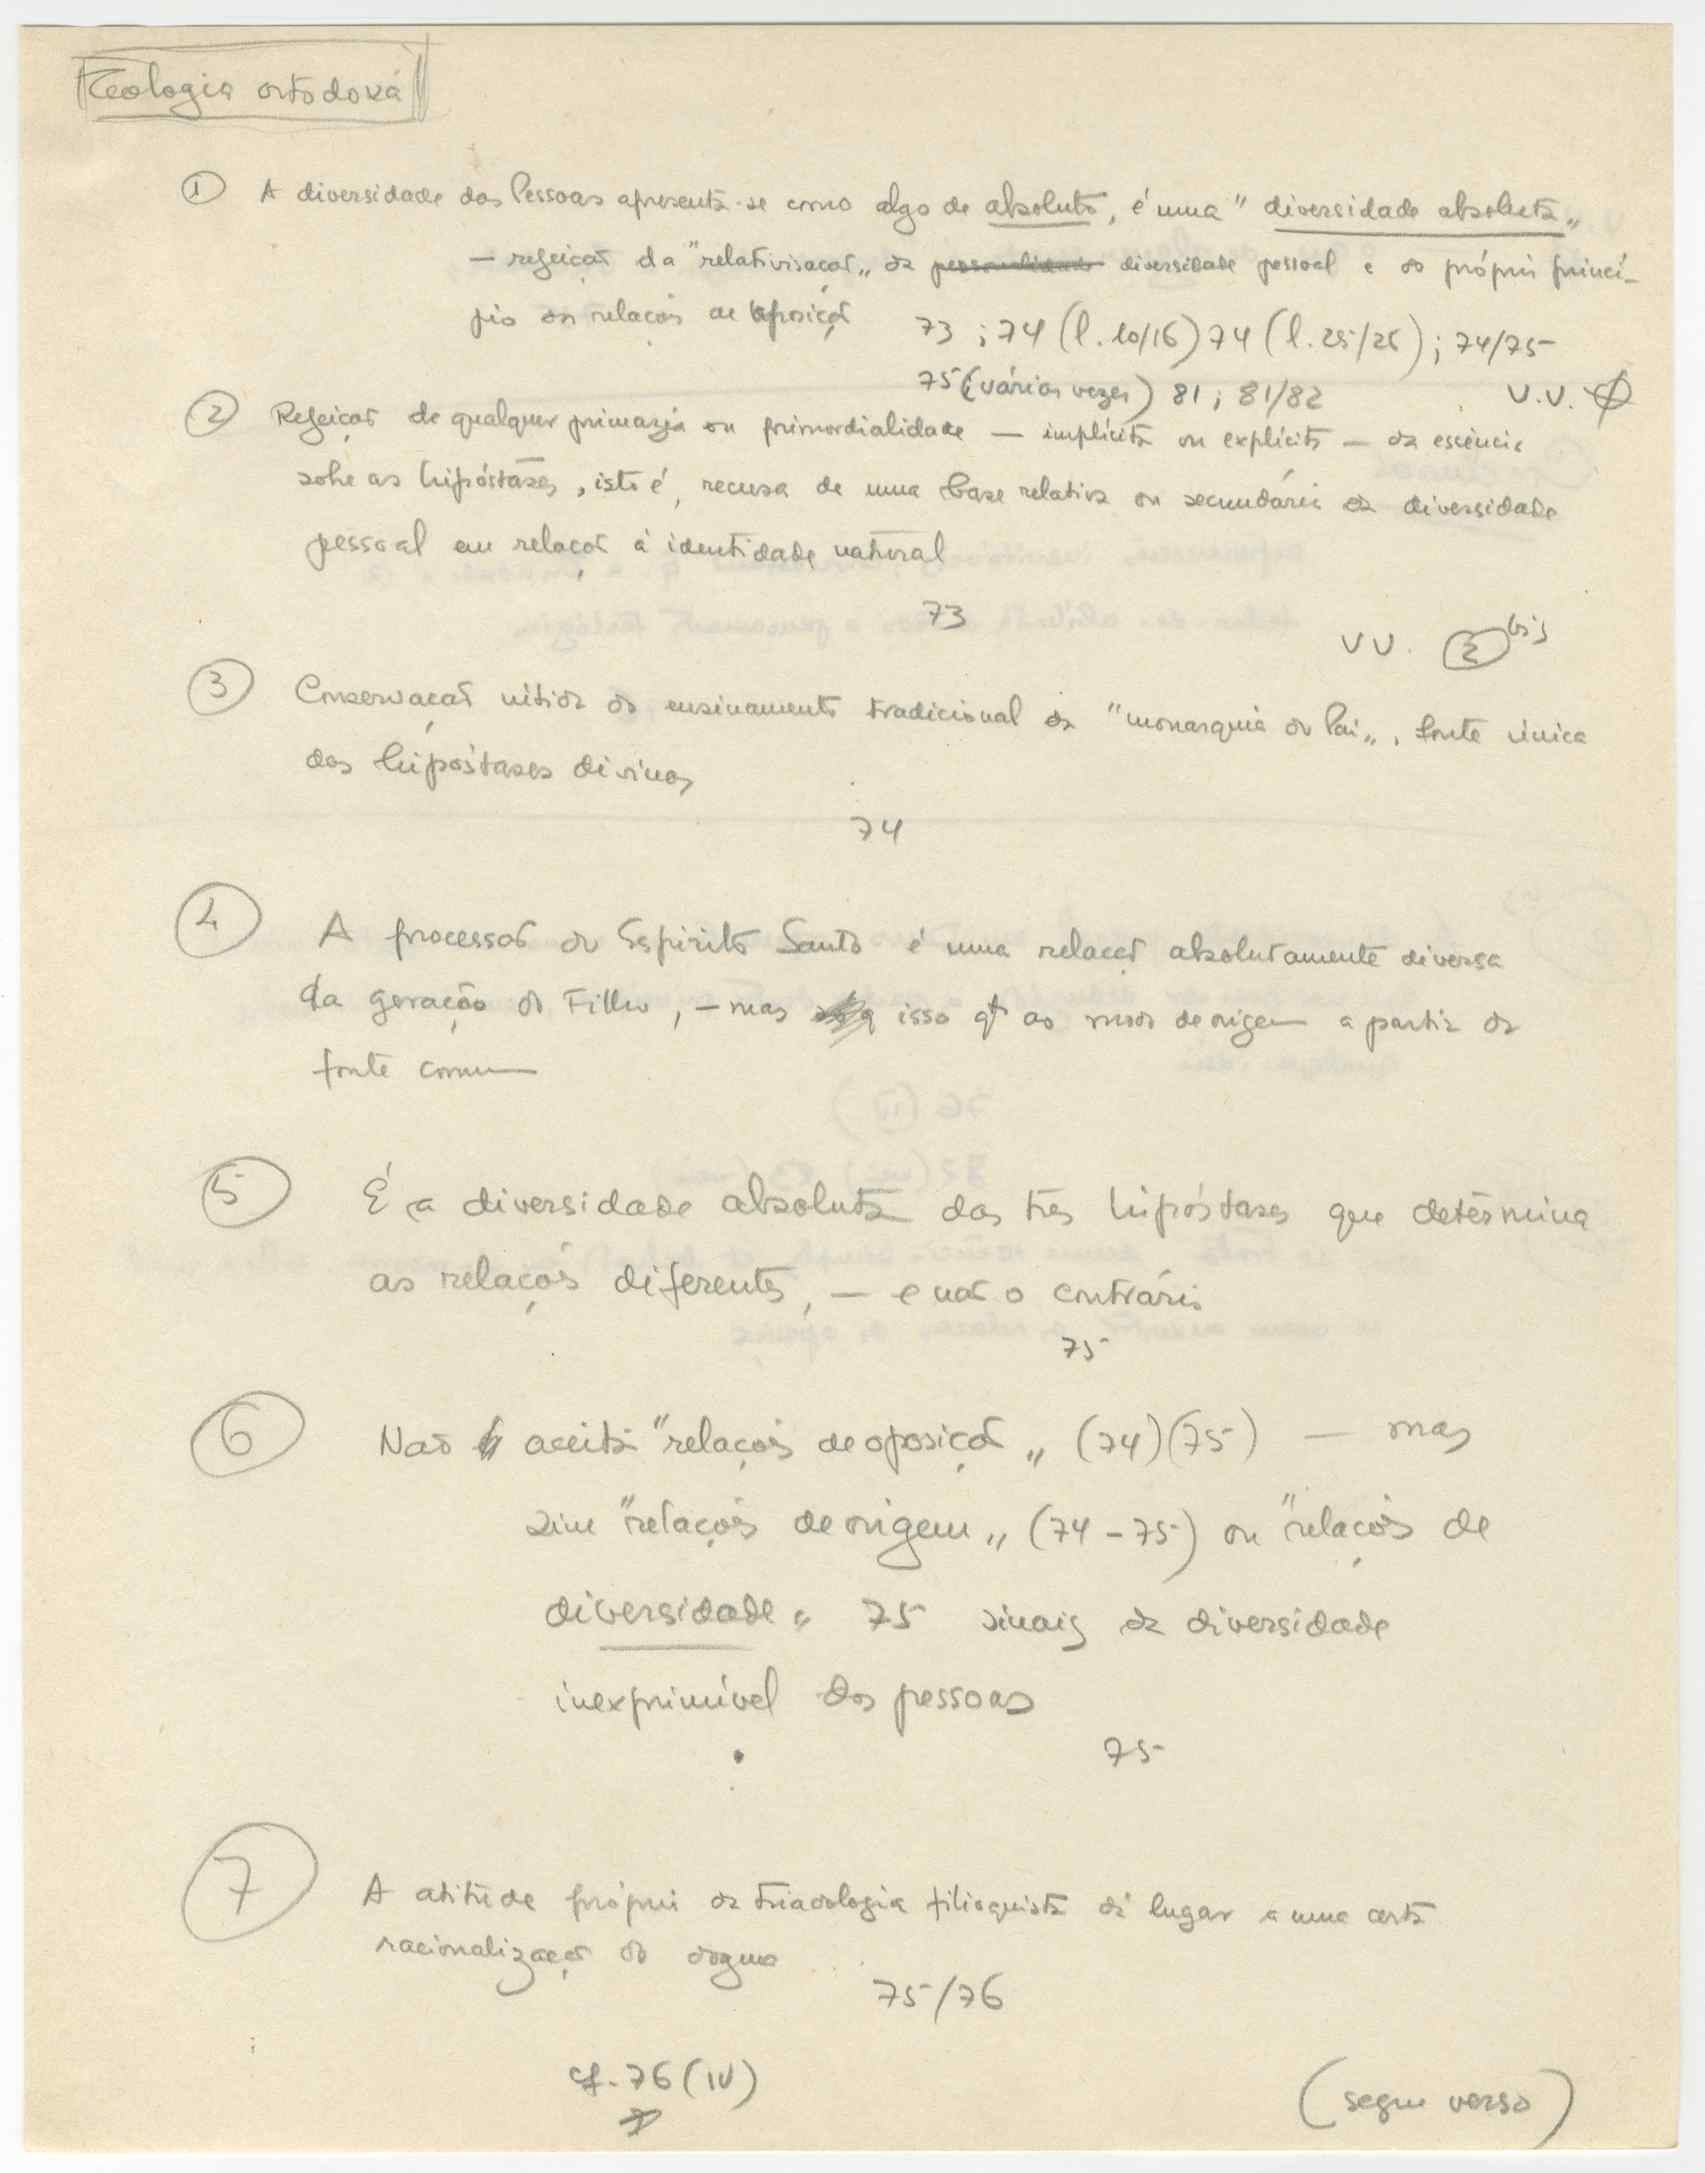 Teologia ortodoxa
① A diversidade das Pessoas apresenta-se como algo de absoluto, é uma "diversidade absoluta"
— rejeição da "relativisação" da diversidade pessoal e do próprio princí-
pio das relações de oposição 73 ; 74 (l. 10/16) 74 (l. 25/26) ; 74/75
75 (várias vezes) 81 ; 81/82 V.V.
② Rejeição de qualquer primazia ou primordialidade — implícita ou explícita — da essência
sobre as hipóstases, isto é, recusa de uma base relativa ou secundária da diversidade
pessoal em relação à identidade natural
73
VV. ② bis
③ Conservação nítida do ensinamento tradicional da "monarquia do Pai", fonte única
das hipóstases divinas
74
④ A processão do Espírito Santo é uma relação absolutamente diversa
da geração do Filho, — mas isso qt ao modo de origem a partir da
fonte comum
⑤ É a diversidade absoluta das três hipóstases que determina
as relações diferentes, — e não o contrário
75
⑥ Não aceita "relações de oposição" (74) (75) — mas
sim "relações de origem" (74-75) ou "relações de
diversidade" 75 sinais da diversidade
inexprimível das pessoas
75
⑦ A atitude própria da triadologia filioquista dá lugar a uma certa
racionalização do dogma
75/76
cf. 76 (IV)
(segue verso)